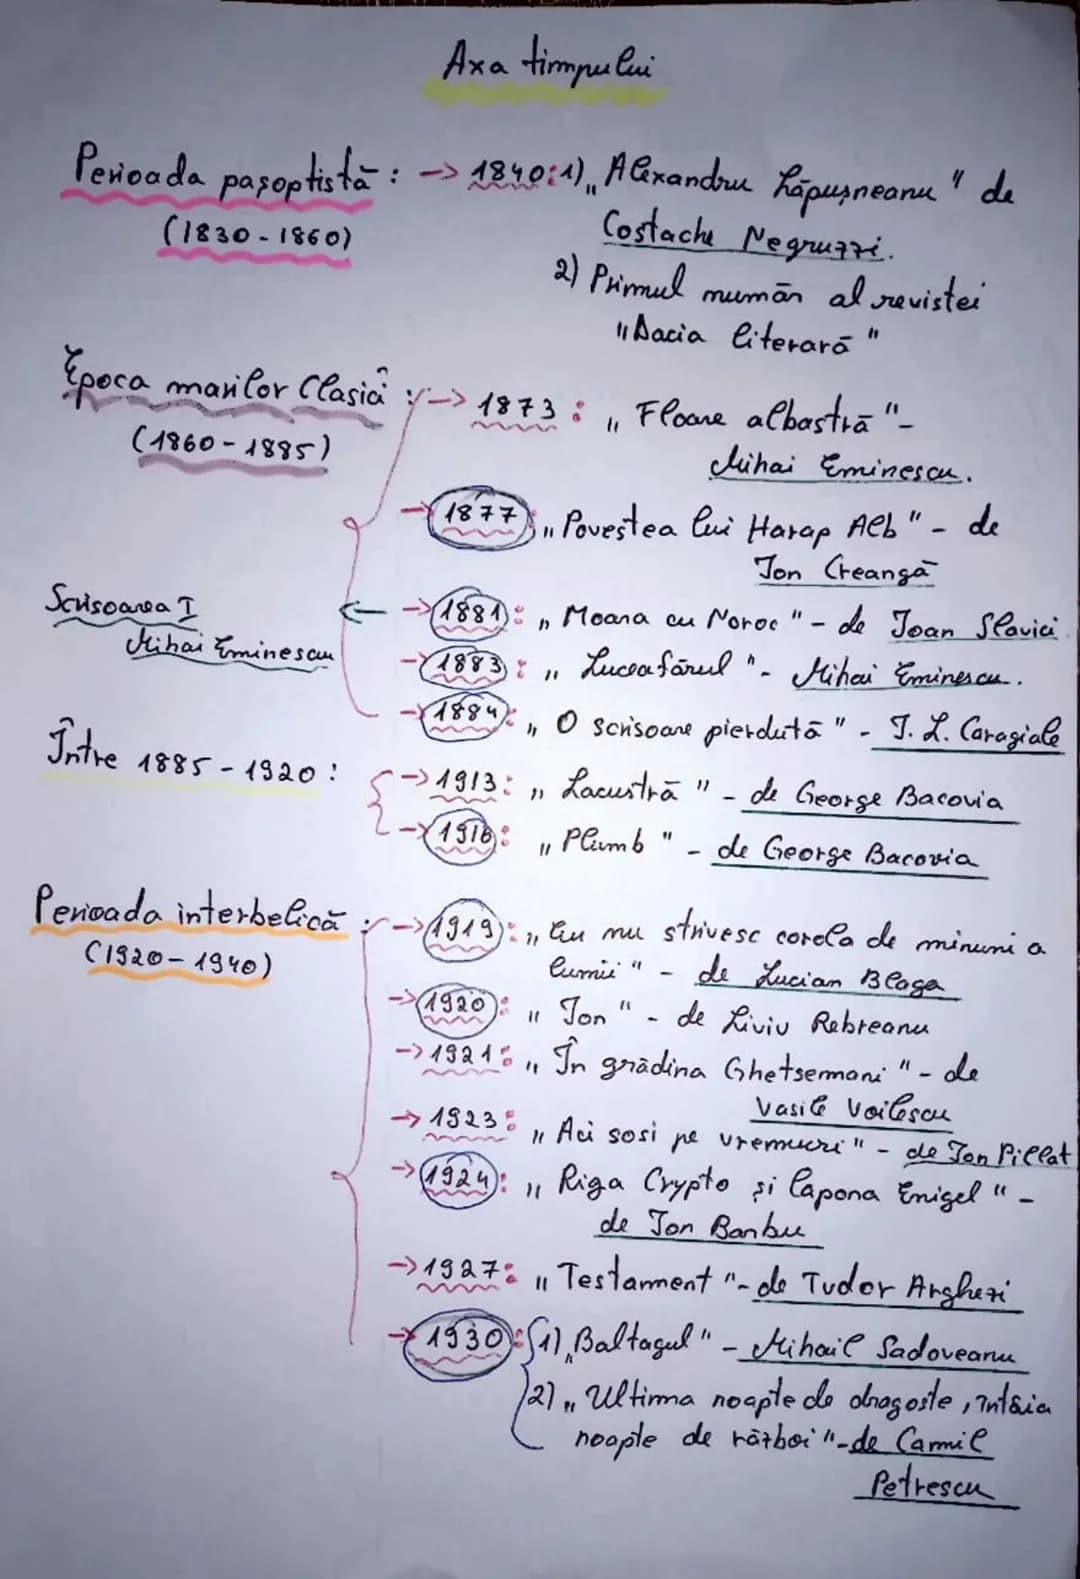 Axa timpului
Perioada pașoptistă : -> 1840:1) „Alexandru Lăpușneanu" de
(1830-1860)
Costache Negruzzi.
2) Primul număr al revistei
„Dacia literară"
Epoca marilor Clasici : -> 1873 : „Floare albastră" -
(1860-1885)
Mihai Eminescu.
-> 1877 : „Povestea lui Harap Alb" - de
Ion Creangă
Scrisoarea I
<- -> 1881 : „Moara cu Noroc" - de Ioan Slavici
Mihai Eminescu
-> 1883 : „Luceafărul" - Mihai Eminescu.
-> 1884 : „O scrisoare pierdută" - I. L. Caragiale
Între 1885-1920 :
-> 1913 : „Lacustră" - de George Bacovia
-> 1916 : „Plumb" - de George Bacovia
Perioada interbelică : -> 1919 : „Eu nu strivesc corola de minuni a
(1920-1940)
lumii" - de Lucian Blaga
-> 1920 : „Ion" - de Liviu Rebreanu
-> 1921 : „În grădina Ghetsemani" - de
Vasile Voilescu
-> 1923 : „Aci sosi pe vremuri" - de Ion Pillat
-> 1924 : „Riga Crypto și lapona Enigel" -
de Ion Barbu
-> 1927 : „Testament" - de Tudor Arghezi
-> 1930 : 1) „Baltagul" - Mihail Sadoveanu
2) „Ultima noapte de dragoste, întâia
noapte de război" - de Camil
Petrescu